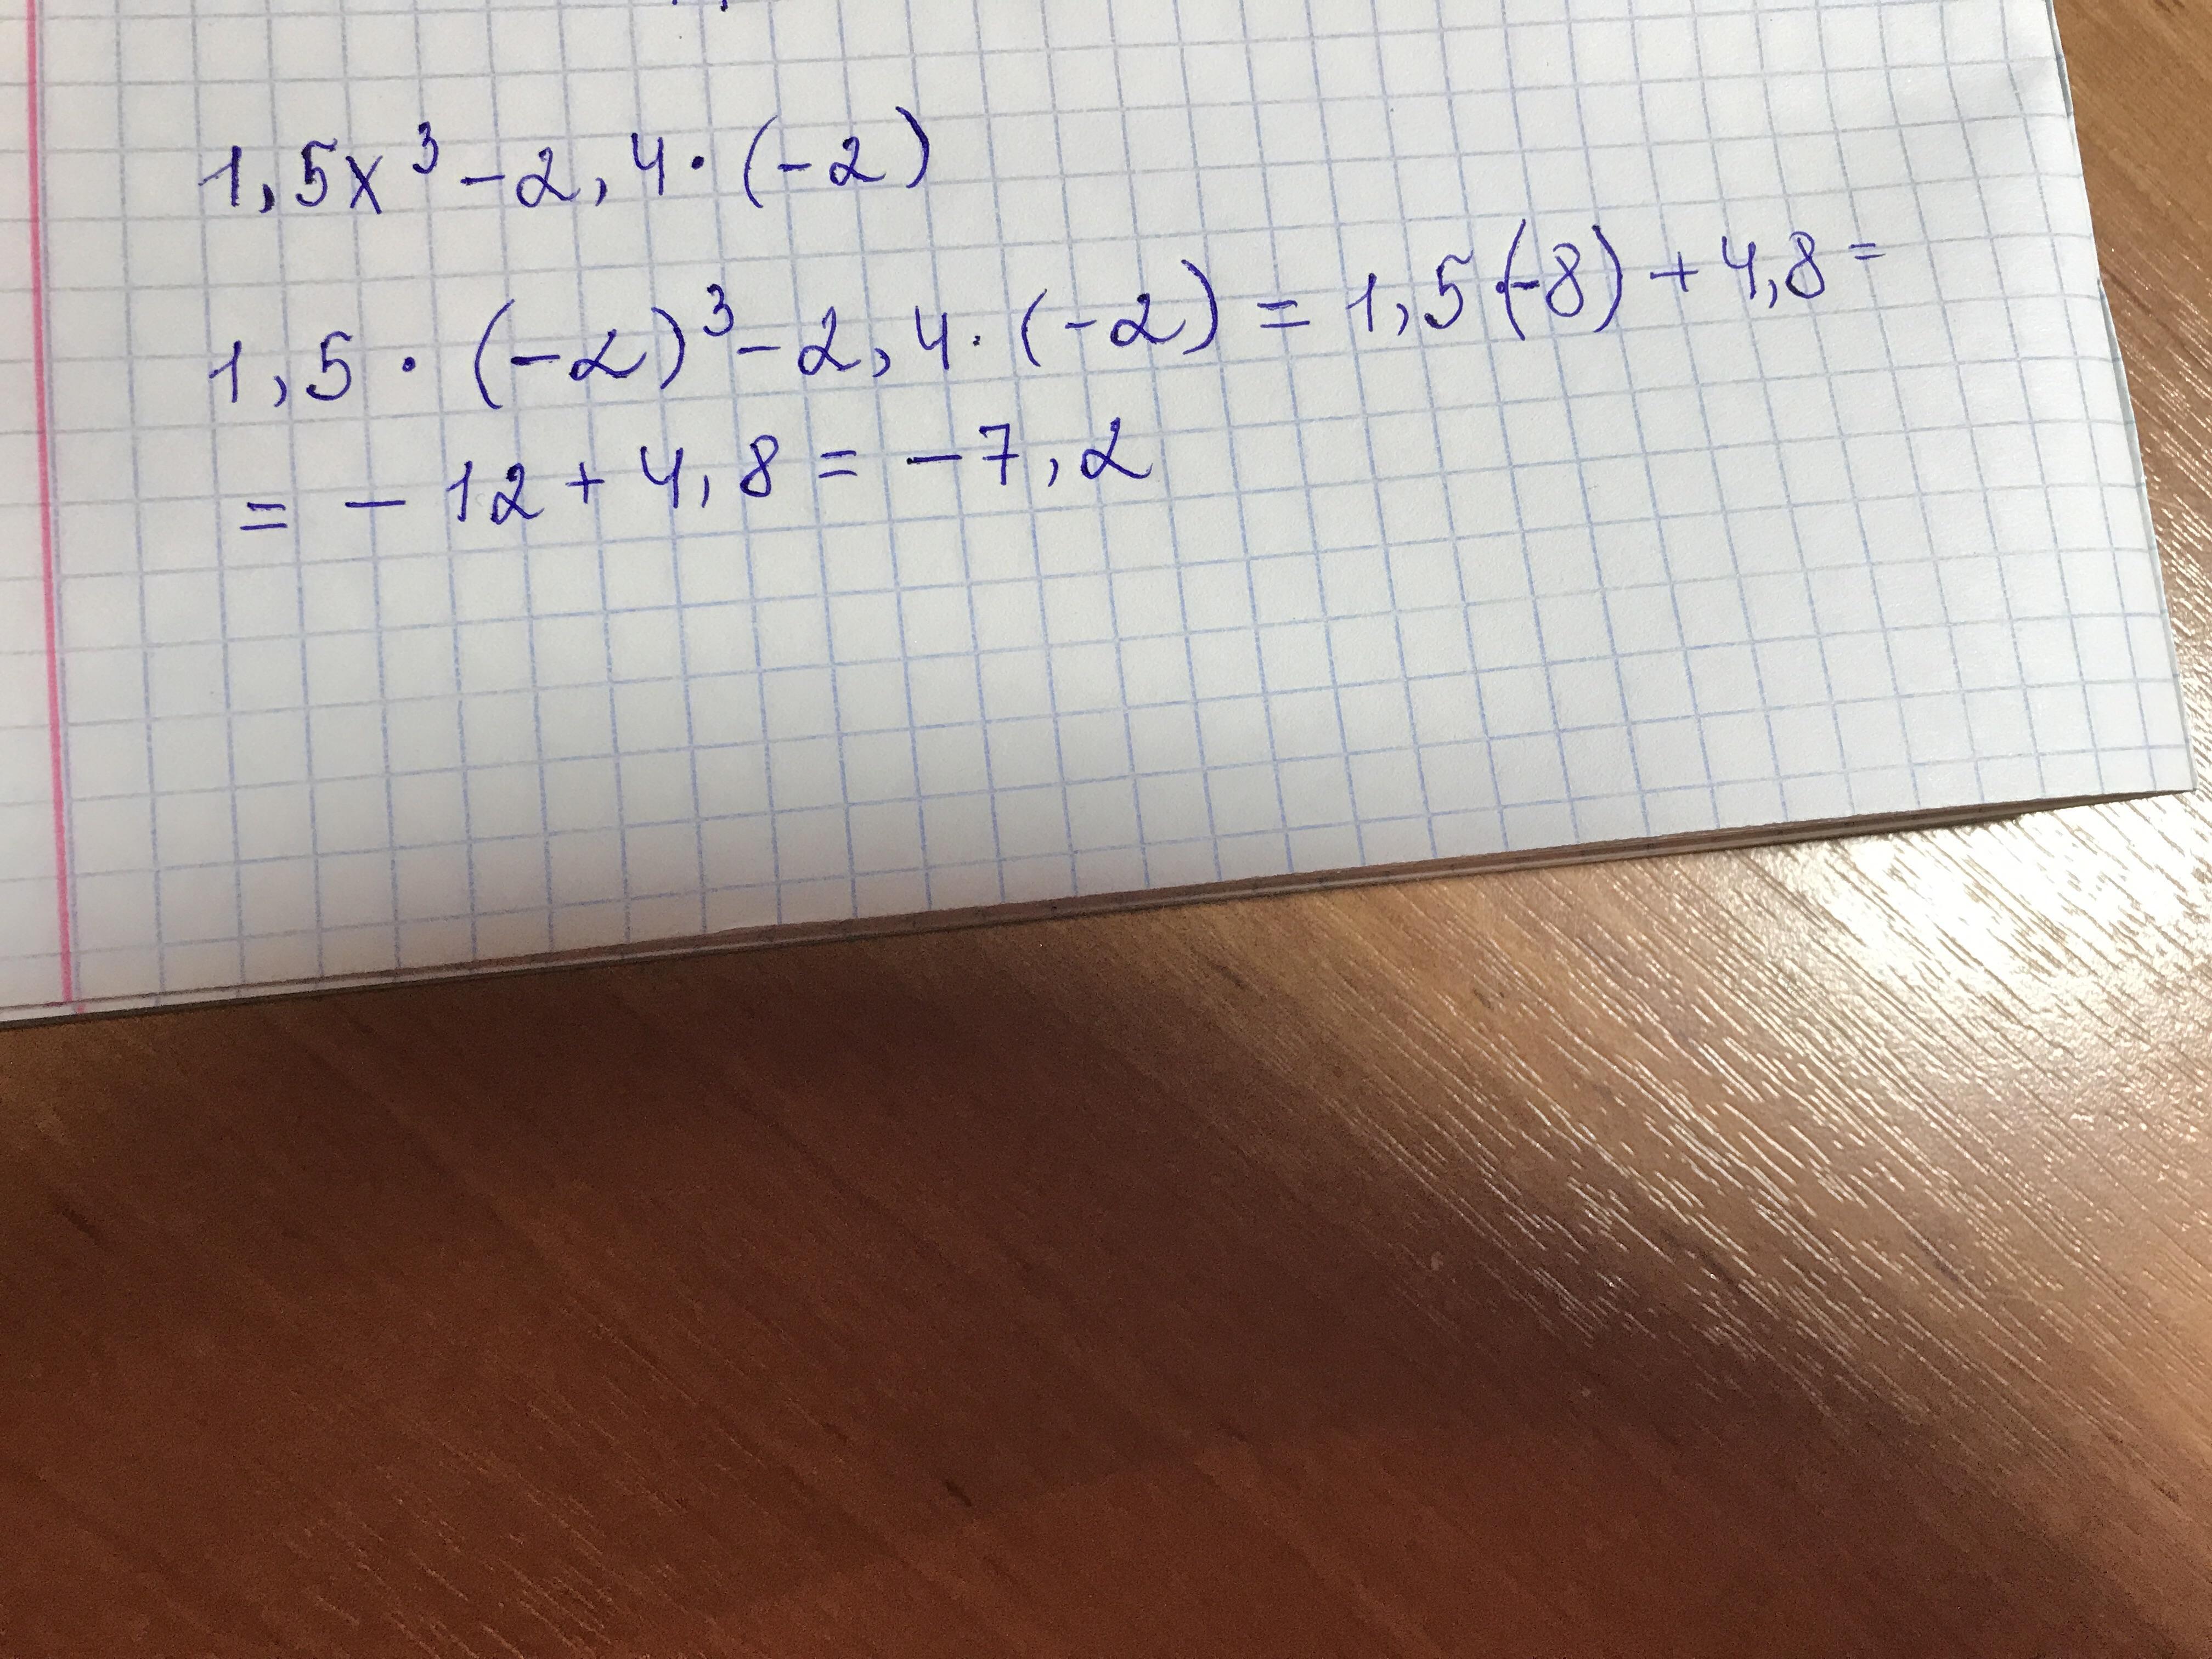 1,5x³-2,4·(-2)
1,5·(-2)³-2,4·(-2)=1,5·(-8)+4,8=
=-12+4,8=-7,2